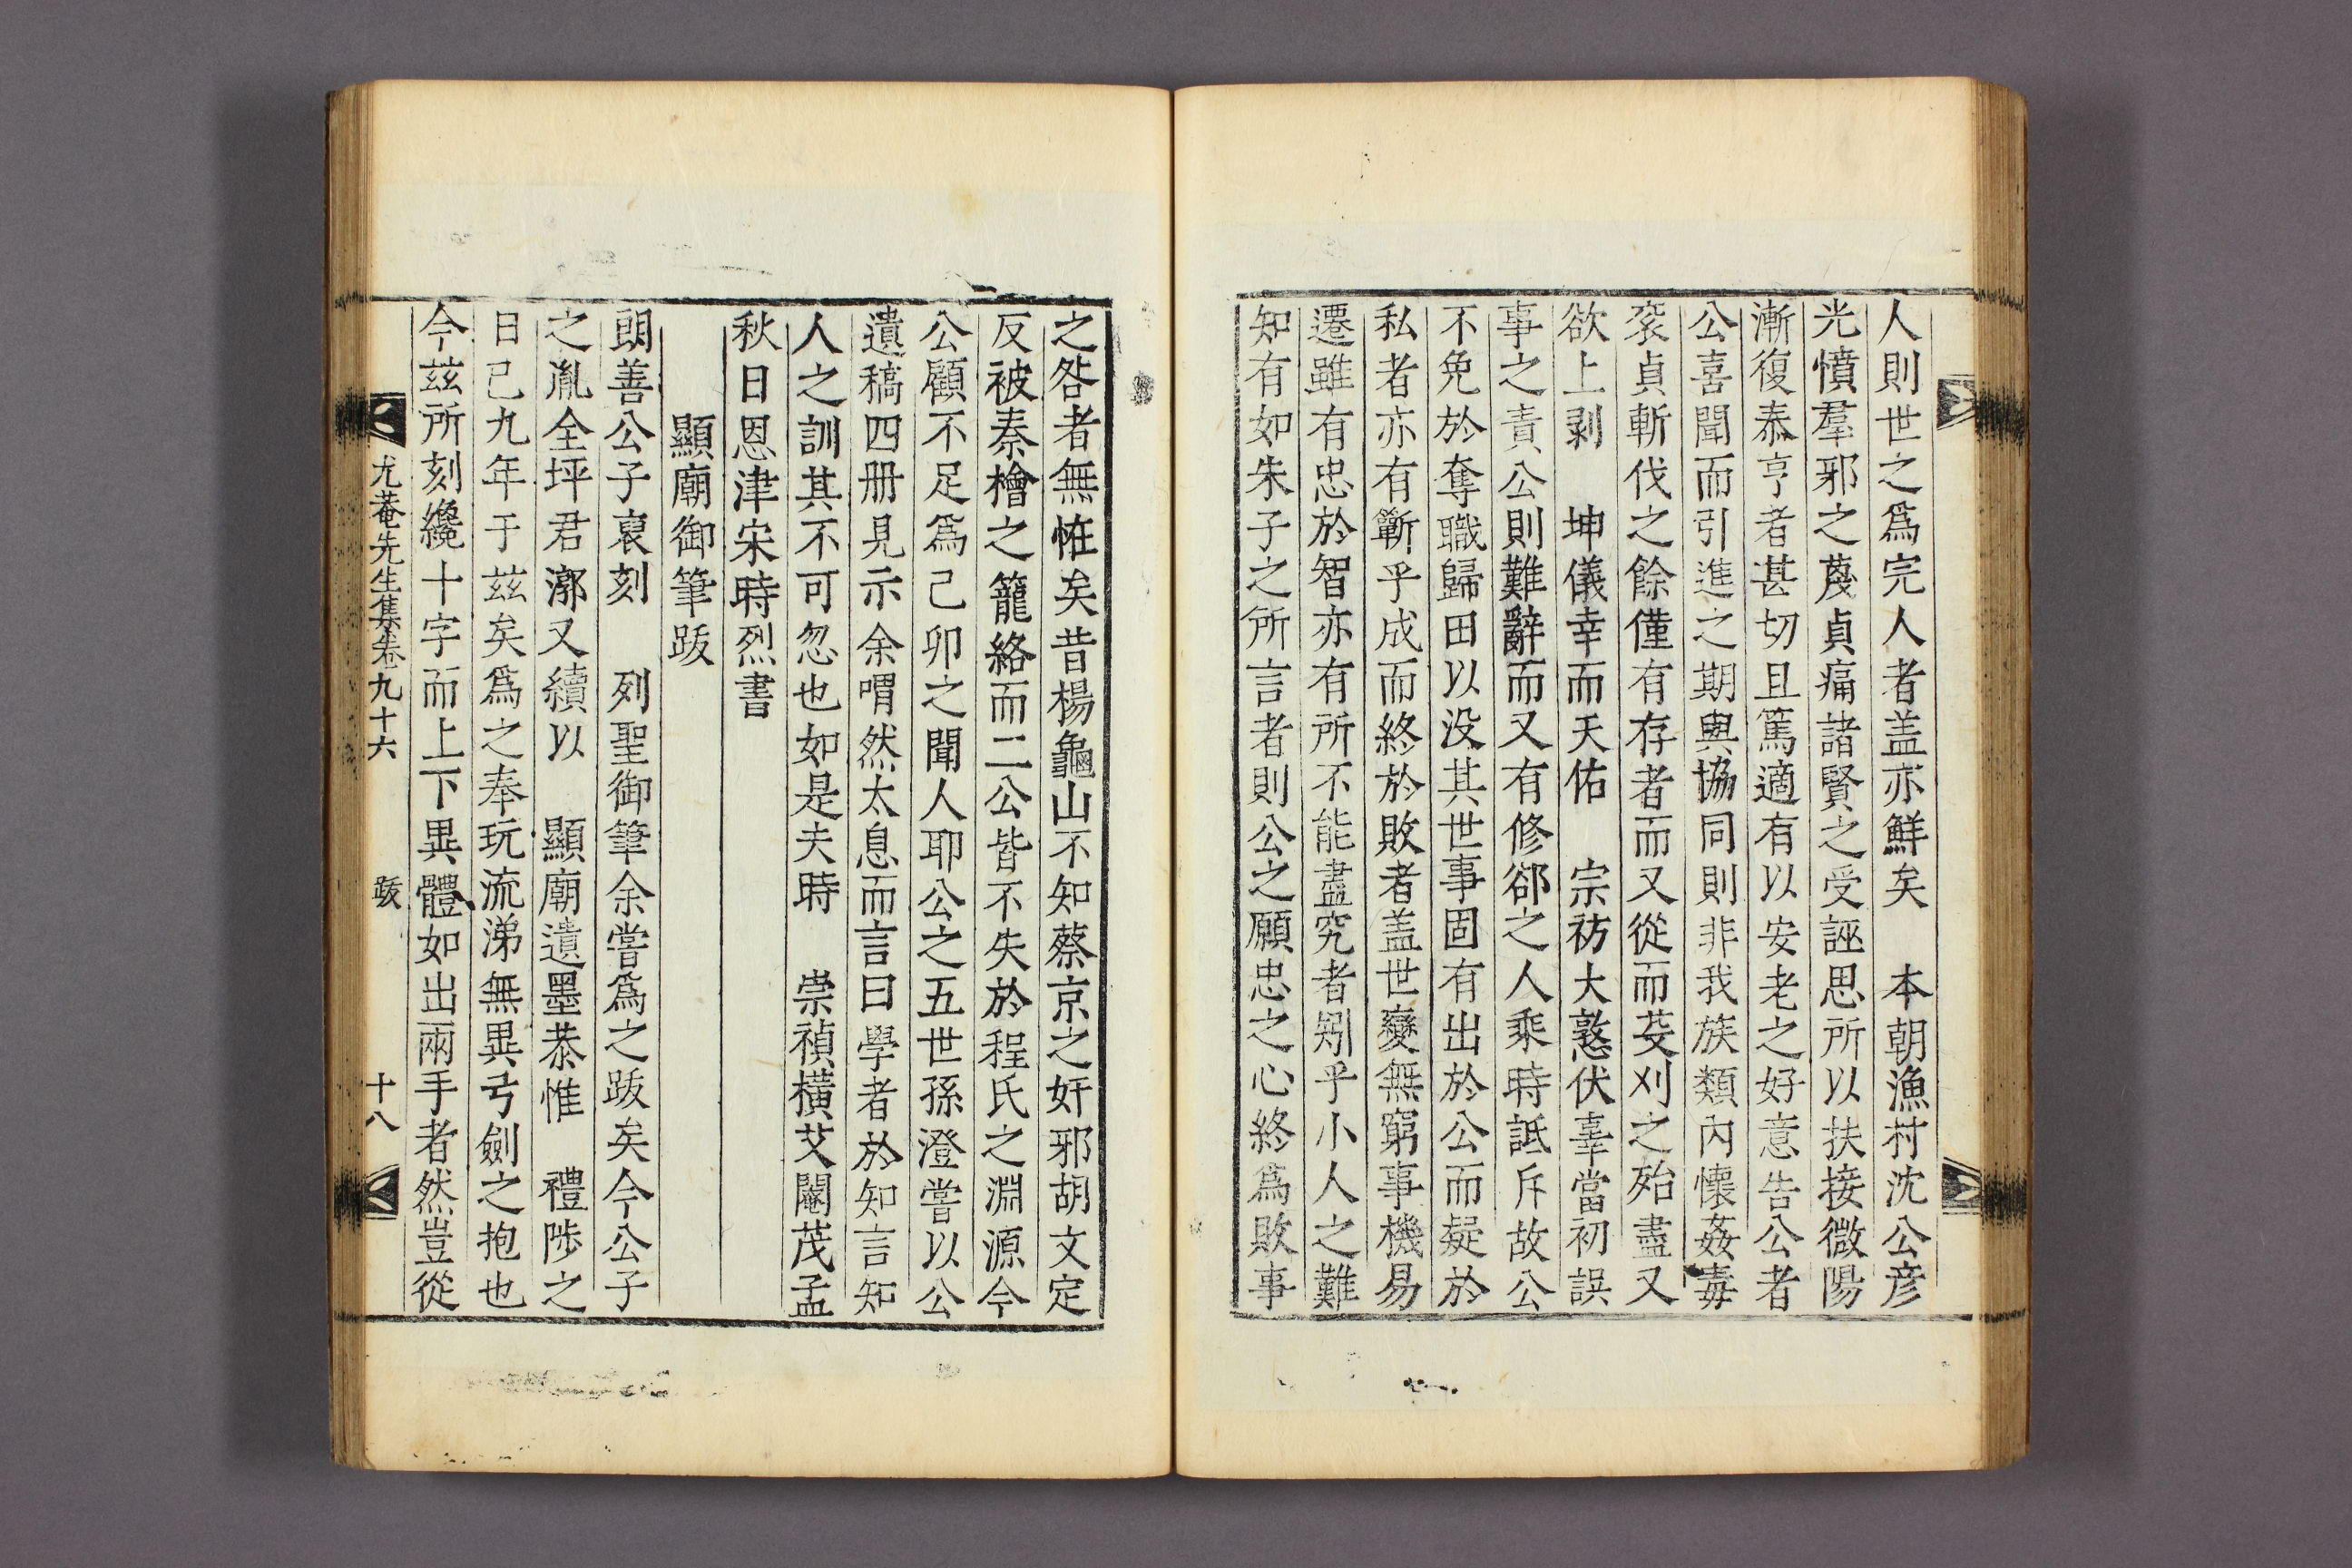 人則世之爲完人者盖亦鮮矣 本朝漁村沈公彦
光憤羣邪之蔑貞痛諸賢之受誣思所以扶接微陽
漸復泰亨者甚切且篤適有以安老之好意告公者
公喜聞而引進之期與協同則非我族類內懷姦毒
衮貞斬伐之餘僅有存者而又從而芟刈之殆盡又
欲上剥 坤儀幸而天佑 宗祊大憝伏辜當初誤
事之責公則難辭而又有修郤之人乘時詆斥故公
不免於奪職歸田以没其世事固有出於公而疑於
私者亦有斵乎成而終於敗者盖世變無窮事機易
遷雖有忠於智亦有所不能盡究者矧乎小人之難
知有如朱子之所言者則公之願忠之心終爲敗事
之咎者無恠矣昔楊龜山不知蔡京之奸邪胡文定
反被秦檜之籠絡而二公皆不失於程氏之淵源今
公顧不足爲己卯之聞人耶公之五世孫澄嘗以公
遺稿四册見示余喟然太息而言曰學者於知言知
人之訓其不可忽也如是夫時 崇禎橫艾閹茂孟
秋日恩津宋時烈書
顯廟御筆跋
朗善公子裒刻 列聖御筆余嘗爲之跋矣今公子
之胤全坪君漷又續以 顯廟遺墨恭惟 禮陟之
日已九年于玆矣爲之奉玩流涕無異弓劍之抱也
今玆所刻纔十字而上下異體如出兩手者然豈從
尤菴先生集卷九十六 跋 十八